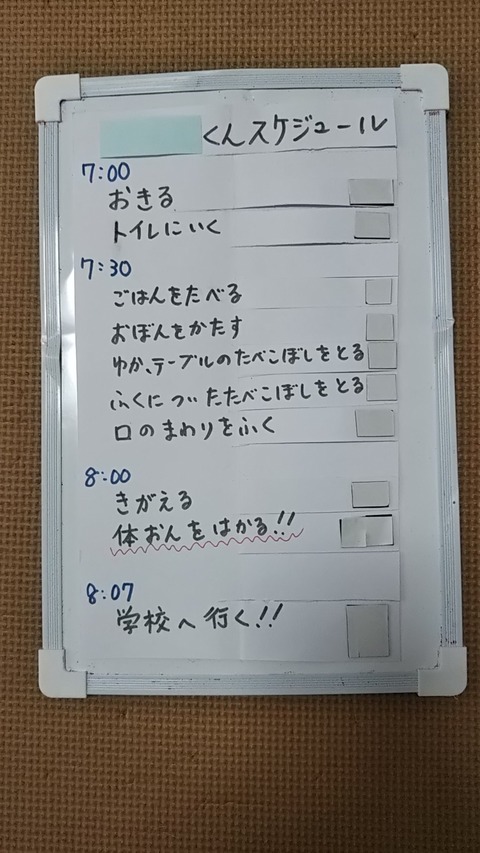 くんスケジュール
7:00
おきる
トイレにいく
7:30
ごはんをたべる
おぼんをかたす
ゆか、テーブルのたべこぼしをとる
ふくについたたべこぼしをとる
口のまわりをふく
8:00
きがえる
体おんをはかる!!
8:07
学校へ行く!!